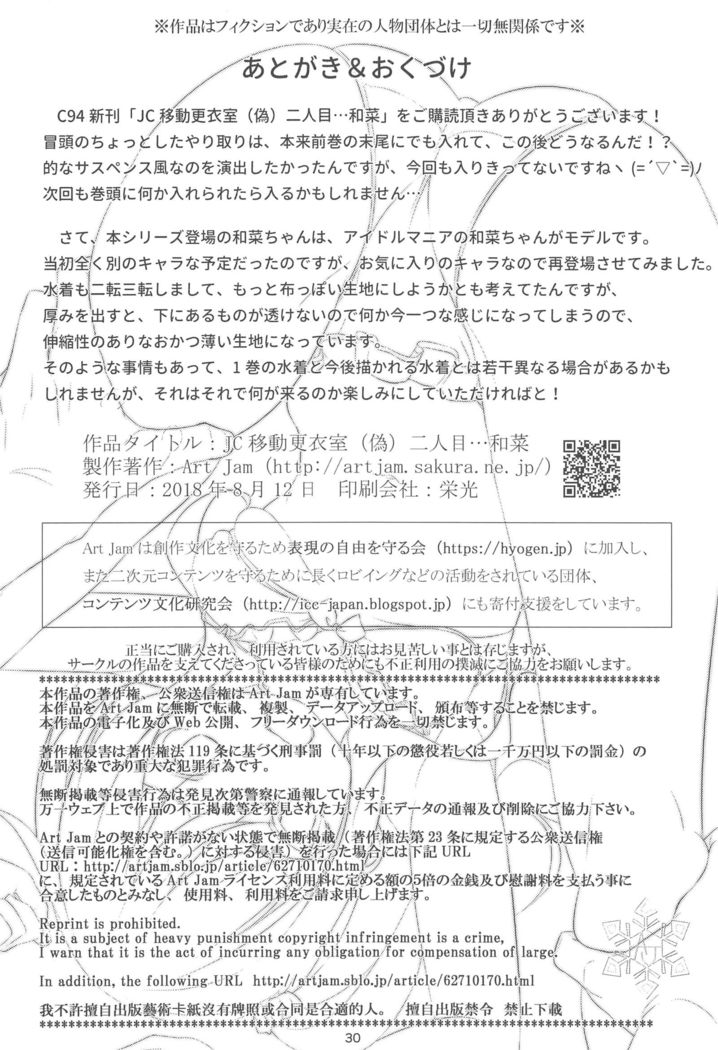 ※作品はフィクションであり実在の人物団体とは一切無関係です※
あとがき＆おくづけ
C94新刊「JC移動更衣室（偽）二人目…和菜」をご購読頂きありがとうございます！
冒頭のちょっとしたやり取りは、本来前巻の末尾にでも入れて、この後どうなるんだ！？
的なサスペンス風なのを演出したかったんですが、今回も入りきってないですねヽ(=´▽`=)ﾉ
次回も巻頭に何か入れられたら入るかもしれません…
さて、本シリーズ登場の和菜ちゃんは、アイドルマニアの和菜ちゃんがモデルです。
当初全く別のキャラな予定だったのですが、お気に入りのキャラなので再登場させてみました。
水着も二転三転しまして、もっと布っぽい生地にしようかとも考えてたんですが、
厚みを出すと、下にあるものが透けないので何か今一つな感じになってしまうので、
伸縮性のありなおかつ薄い生地になっています。
そのような事情もあって、1巻の水着と今後描かれる水着とは若干異なる場合があるかも
しれませんが、それはそれで何が来るのか楽しみにしていただければと！
作品タイトル：JC移動更衣室（偽）二人目…和菜
製作著作：Art Jam（http://artjam.sakura.ne.jp/）
発行日：2018年8月12日　印刷会社：栄光
Art Jamは創作文化を守るため表現の自由を守る会（https://hyogen.jp）に加入し、
また二次元コンテンツを守るために長くロビイングなどの活動をされている団体、
コンテンツ文化研究会（http://icc-japan.blogspot.jp）にも寄付支援をしています。
正当にご購入され、利用されている方にはお見苦しい事とは存じますが、
サークルの作品を支えてくださっている皆様のためにも不正利用の撲滅にご協力をお願いします。
本作品の著作権、公衆送信権はArt Jamが専有しています。
本作品をArt Jamに無断で転載、複製、データアップロード、頒布等することを禁じます。
本作品の電子化及びWeb公開、フリーダウンロード行為を一切禁じます。
著作権侵害は著作権法119条に基づく刑事罰（十年以下の懲役若しくは一千万円以下の罰金）の
処罰対象であり重大な犯罪行為です。
無断掲載等侵害行為は発見次第警察に通報しています。
万一ウェブ上で作品の不正掲載等を発見された方、不正データの通報及び削除にご協力下さい。
Art Jamとの契約や許諾がない状態で無断掲載（著作権法第23条に規定する公衆送信権
（送信可能化権を含む。）に対する侵害）を行った場合には下記URL
URL：http://artjam.sblo.jp/article/62710170.html
に、規定されているArt Jamライセンス利用料に定める額の5倍の金銭及び慰謝料を支払う事に
合意したものとみなし、使用料、利用料をご請求申し上げます。
Reprint is prohibited.
It is a subject of heavy punishment copyright infringement is a crime,
I warn that it is the act of incurring any obligation for compensation of large.
In addition, the following URL　http://artjam.sblo.jp/article/62710170.html
我不許擅自出版藝術卡紙沒有牌照或合同是合適的人。　擅自出版禁令　禁止下載
30